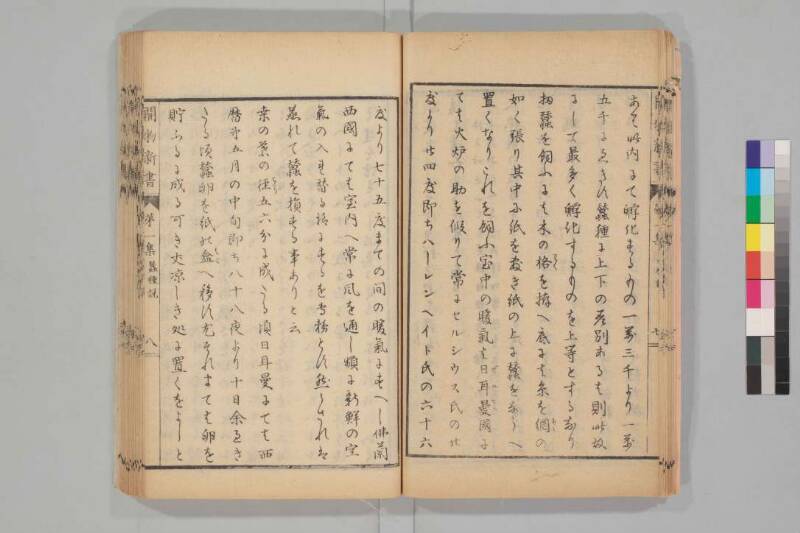 あて此内にて孵化するもの一万三千より一万
五千に至る蚕種に上下の差別あるも則此故
にして最多く孵化するものを上等とするなり
扨蚕を飼ふには木の格を拵へ底には糸を網の
如く張り其中に紙を敷き紙の上に蚕をならへ
置くなりこれを飼ふ室中の暖氣は日耳曼國に
ても火炉の助を假りて常にセルシウス氏の廿
度より廿四度即ちハーレンヘイト氏の六十六
度より七十五度までの间の暖氣にすへし佛蘭
西國にても室内へ常に風を通し頻に新鮮の空
氣の入れ替る様にするを専務とす然らされは
蒸れて蚕を損する事ありと云
桒の葉の径五六分に成る頃日耳曼にても西
暦五月の中旬即ち八十八夜より十日余
る頃蚕卵を紙の盆へ移すそれまては卵を
貯ふるに成る可き丈凉しき処に置くをよしと
開物新書 第一集 蚕種説 八